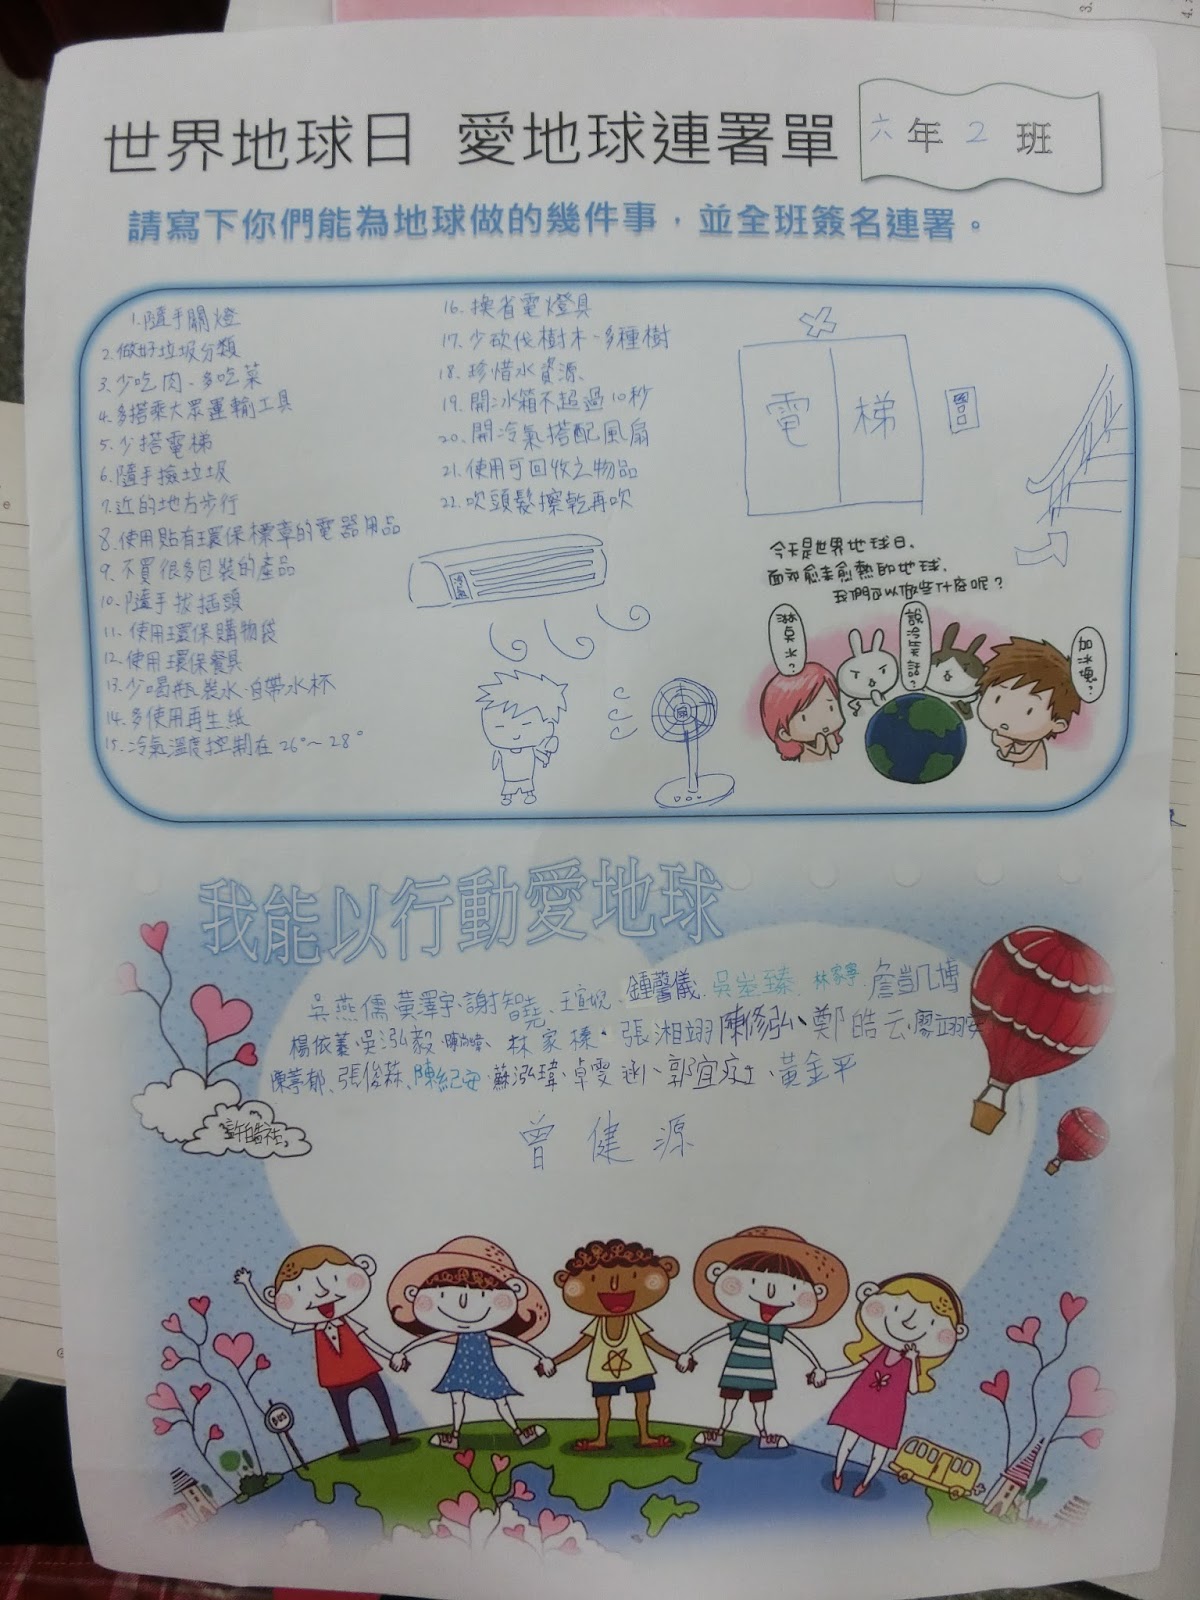 世界地球日 愛地球連署單
六年2班
請寫下你們能為地球做的幾件事，並全班簽名連署。
1.隨手關燈
2.做好垃圾分類
3.少吃肉、多吃菜
4.多搭乘大眾運輸工具
5.少搭電梯
6.隨手撿垃圾
7.近的地方步行
8.使用貼有環保標章的電器用品
9.不買很多包裝的產品
10.隨手拔插頭
11.使用環保購物袋
12.使用環保餐具
13.少喝瓶裝水、自帶水杯
14.多使用再生紙
15.冷氣溫度控制在26°~28°
16.換省電燈具
17.少砍伐樹木、多種樹
18.珍惜水資源
19.開冰箱不超過10秒
20.開冷氣搭配風扇
21.使用可回收之物品
22.吹頭髮擦乾再吹
電梯
冷氣
今天是世界地球日，
面對愈來愈熱的地球，
我們可以做些什麼呢？
淋桌水？
說冷笑話？
加冰塊？
我能以行動愛地球
吳燕儒、黃澤宇、謝智堯、王宣婗、鍾馨儀、吳垄臻、林家寧、詹凱博
楊依蓁、吳泓毅、林家榛、張湘翊、陳修弘、鄭皓云、廖翊安
陳葶郁、張俊霖、陳紀安、蘇泓瑋、卓雯涵、郭宜、黃金平
許皓
曾健源
BUS